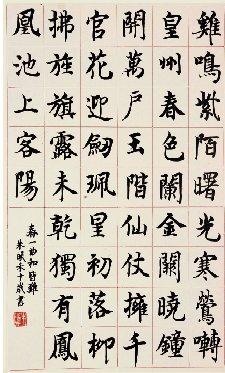 雞鳴紫陌曙光寒鶯囀
皇州春色闌金闕曉鐘
開萬戶玉階仙仗擁千
官花迎劍珮星初落柳
拂旌旗露未乾獨有鳳
凰池上客陽
春一曲和皆難
朱十歲書